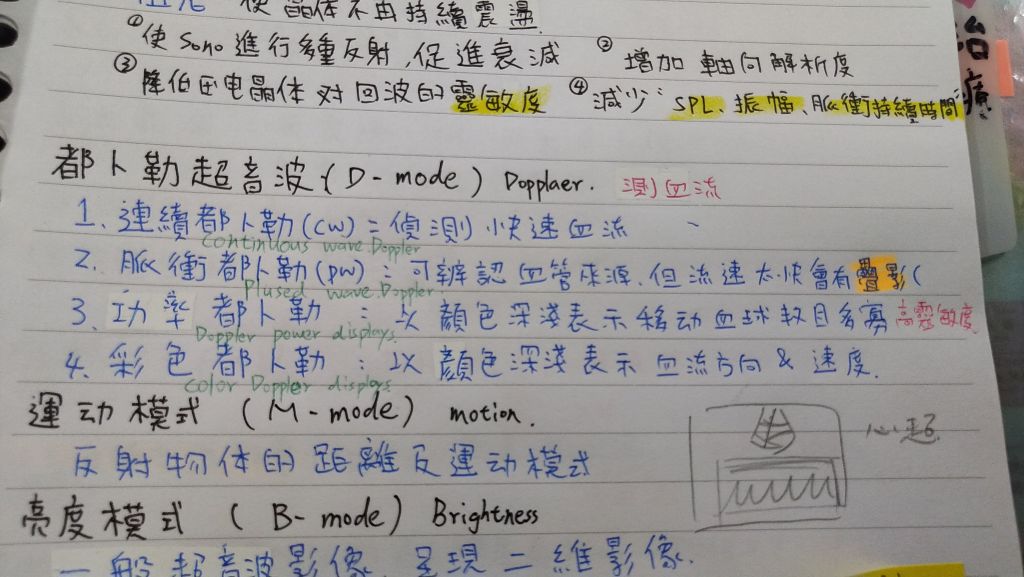 使晶体不由持續震盪
①使 Sono 進行多重反射,促進衰減 ②增加軸向解析度
③降伯压电晶体对回波的靈敏度 ④減少 SPL、振幅、脈衝持續時間
治療
都卜勒超音波(D-mode) Dopplaer. 測血流
1. 連續都卜勒(CW):偵測快速血流
Continuous wave Doppler
2. 脈衝都卜勒(PW):可辨認血管來源.但流速太快會有疊影(
Plused wave Doppler
3. 功率都卜勒:以顏色深淺表示移动血球数目多寡 高靈敏度
Doppler power displays.
4. 彩色都卜勒:以顏色深淺表示血流方向&速度.
color Doppler displays
運动模式(M-mode) motion.
心超
反射物体的距離及運动模式
亮度模式(B-mode) Brightness
一般超音波影像,呈現二維影像.